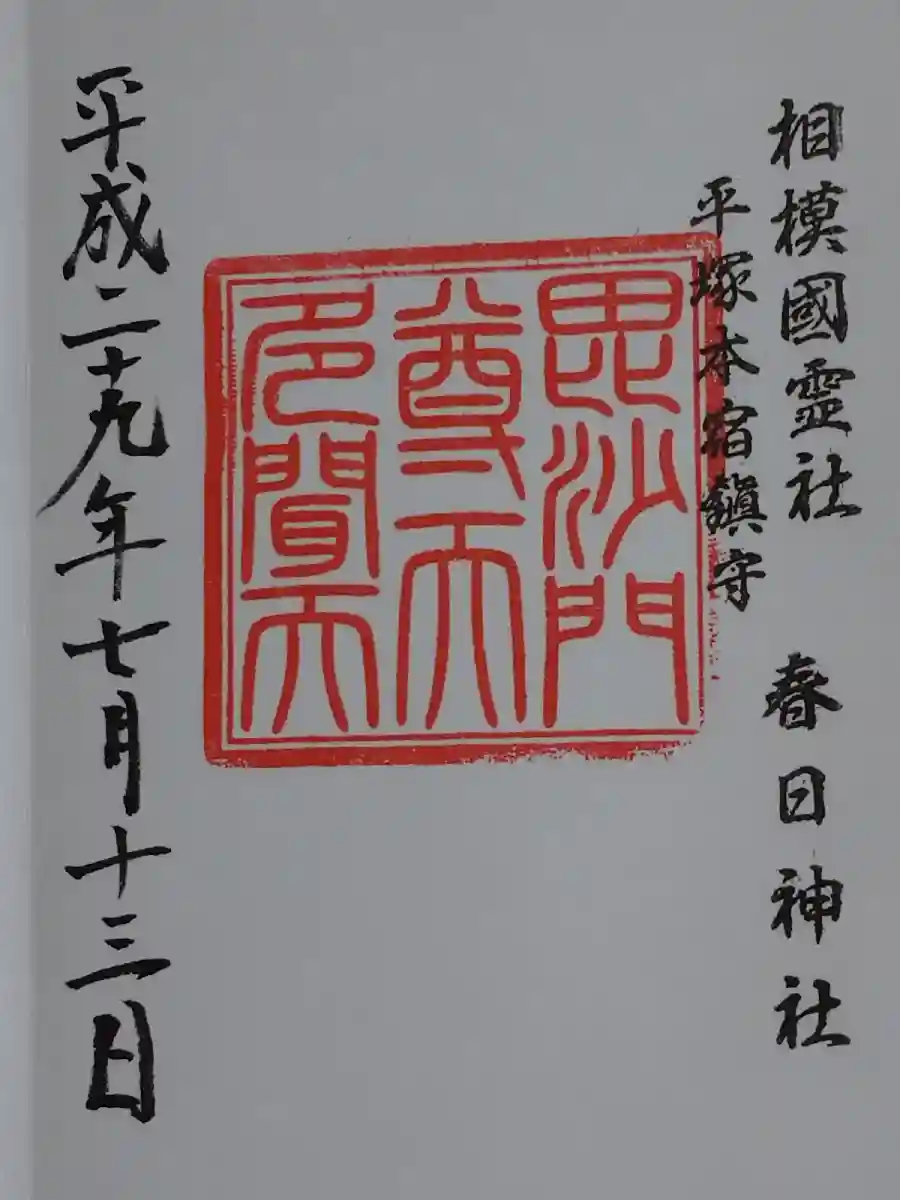 相模國霊社 春日神社
平塚本宿鎮守
毘沙門
尊天
多聞天
平成二十九年七月十三日